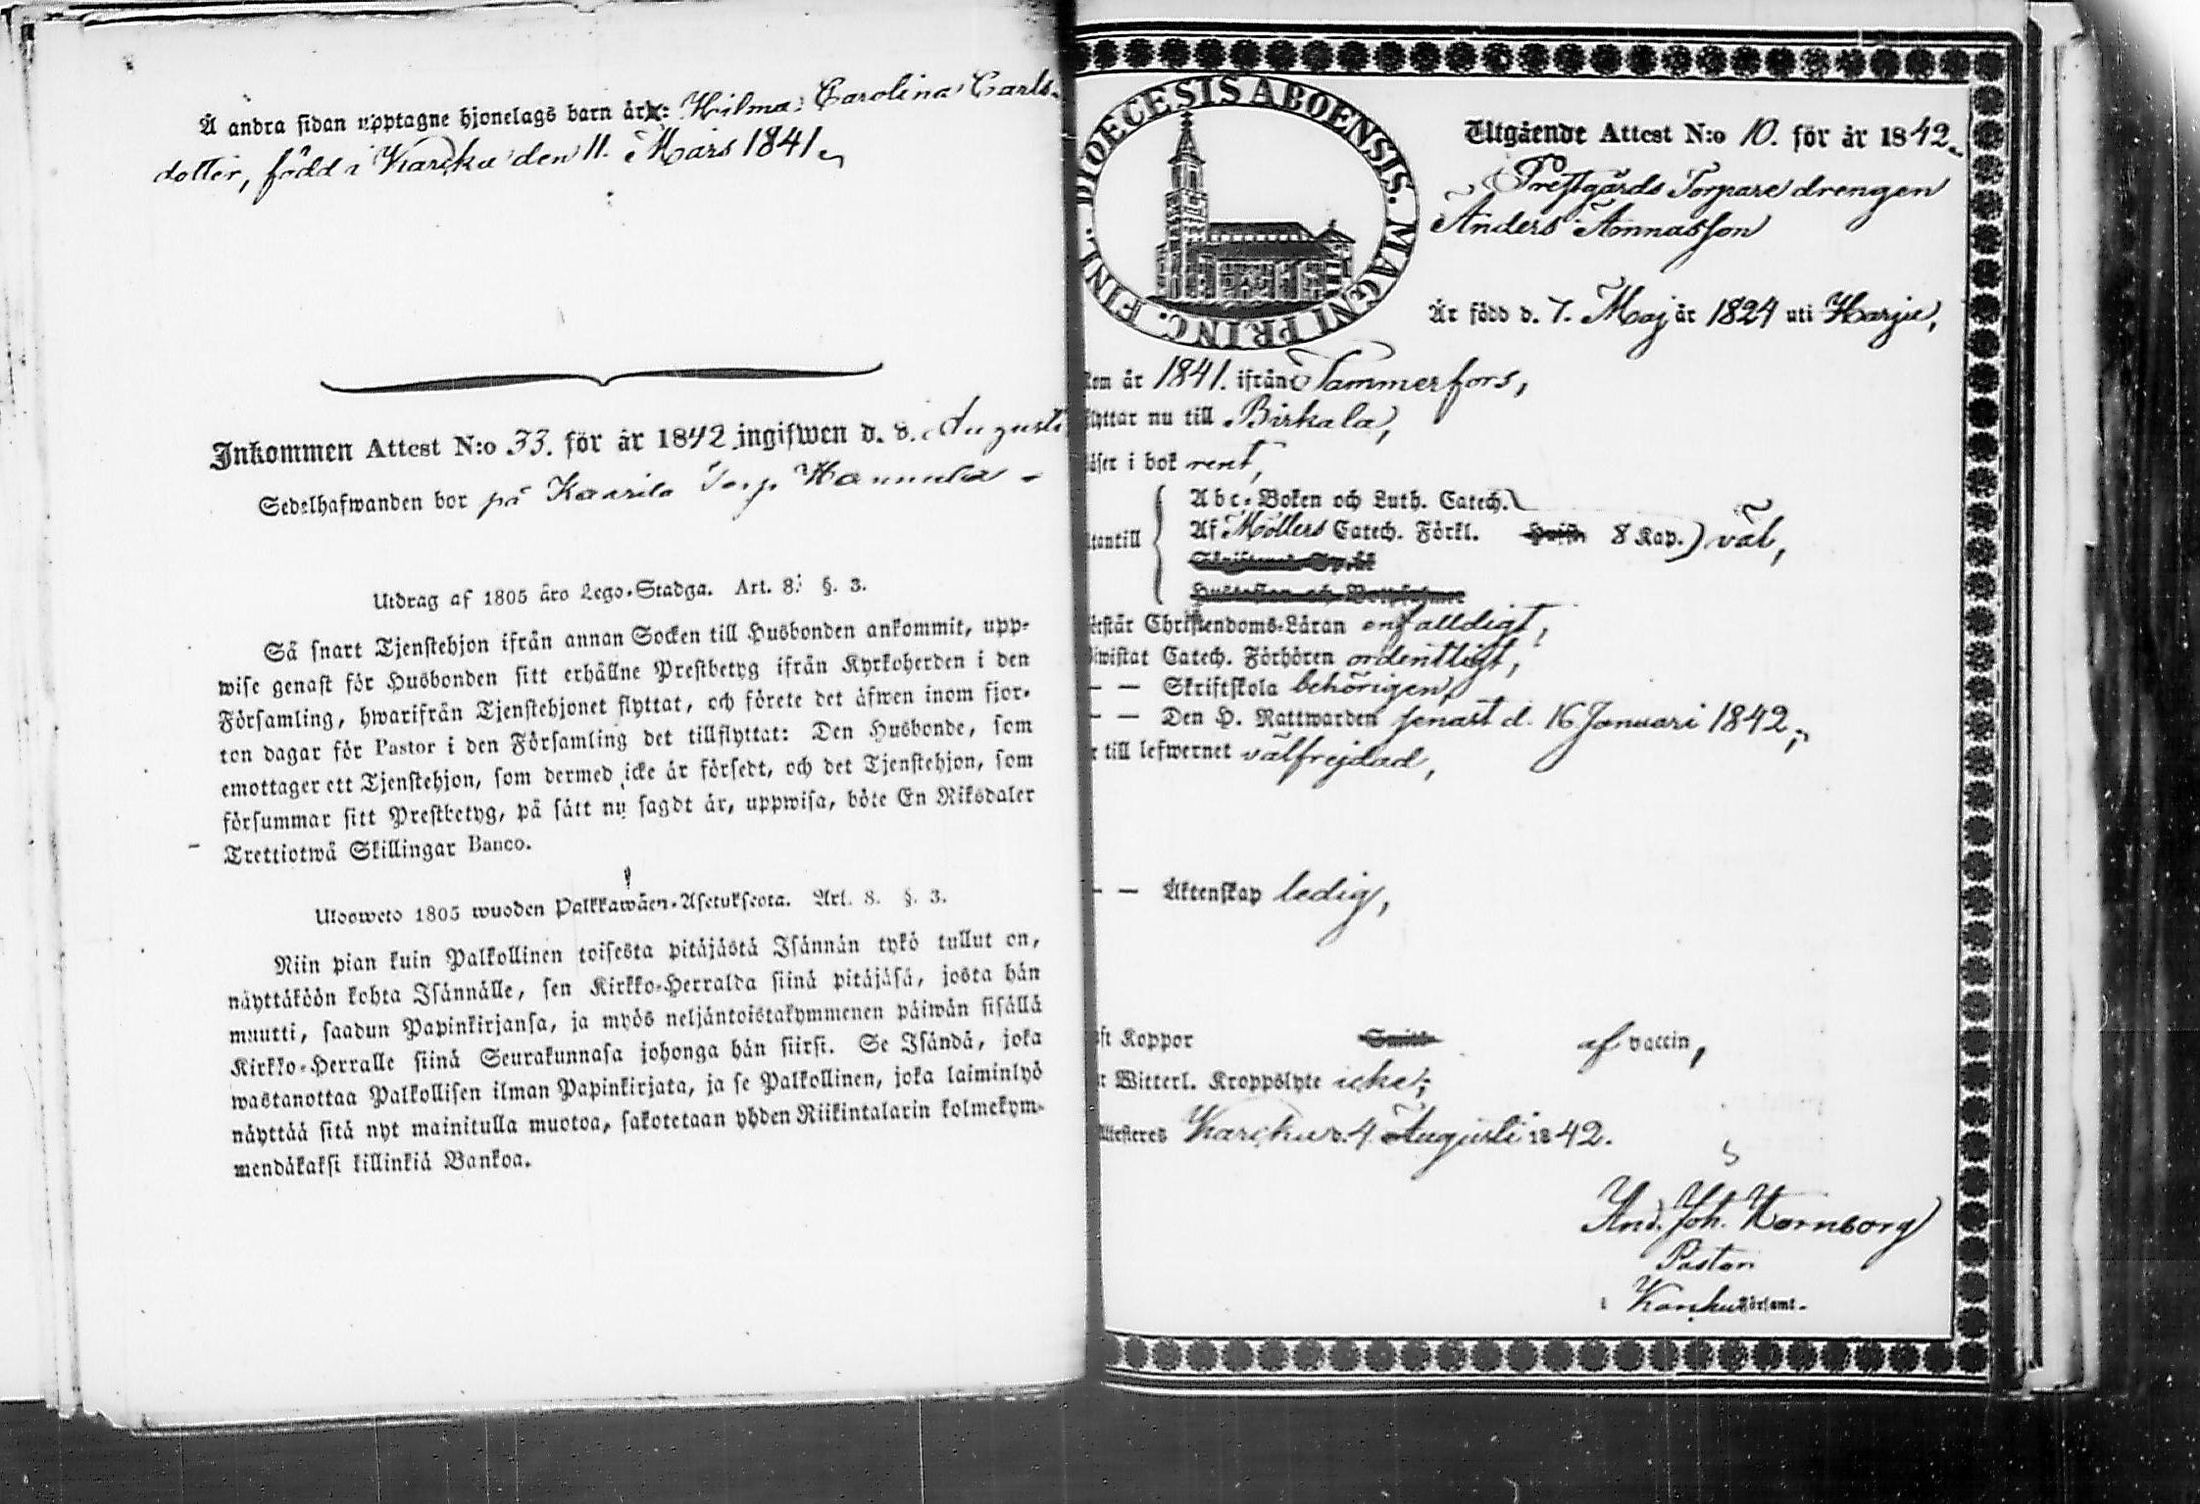 Å andra sidan upptagne hjonelags barn är: Hilma Carolina Carls-
dotter, född i Karcku den 11. Mars 1841.
Inkommen Attest N:o 33. för år 1842 ingifwen d. 8. Augusti
Sedelhafwanden bor på Kaurila Torp Hannula
Utdrag af 1805 åro Lego-Stadga. Art. 8. §. 3.
Så snart Tjenstehjon ifrån annan Socken till Husbonden ankommit, upp-
wise genast för Husbonden sitt erhållne Prestbetyg ifrån Kyrkoherden i den
Församling, hwarifrån Tjenstehjonet flyttat, och förete det äfwen inom fjor-
ton dagar för Pastor i den Församling det tillflyttat: Den Husbonde, som
emottager ett Tjenstehjon, som dermed icke är försedt, och det Tjenstehjon, som
försummar sitt Prestbetyg, på sätt nu sagdt är, uppwisa, böte En Riksdaler
Trettiotwå Skillingar Banco.
Ulosweto 1805 wuoden Palkkawäen-Asetuksesta. Art. 8. §. 3.
Niin pian kuin Palkollinen toisesta pitäjästä Isännän tykö tullut on,
näyttäköön kohta Isännälle, sen Kirkko-Herralda siinä pitäjäsä, josta hän
muutti, saadun Papinkirjansa, ja myös neljäntoistakymmenen päiwän sisällä
Kirkko-Herralle siinä Seurakunnasa johonga hän siirsi. Se Isändä, joka
wastanottaa Palkollisen ilman Papinkirjata, ja se Palkollinen, joka laiminlyö
näyttää sitä nyt mainitulla muotoa, sakotetaan yhden Riikintalarin kolmekym-
mendäkaksi killinkiä Bankoa.
DIOECESIS ABOENSIS. MAGNI PRINC. FINL.
Utgående Attest N:o 10. för år 1842
Prestgårds Torpare drengen
Anders Annasson
Är född d. 7. Maj år 1824 uti Harju,
kom år 1841. ifrån Tammerfors,
flyttar nu till Birkala,
läser i bok rent,
Abc-Boken och Luth. Catech.
utantill Af Möllers Catech. Förkl. 8 Kap. väl,
förstår Christendoms-Läran enfalldigt,
biwistat Catech. Förhören ordentligt,
— — Skriftskola behörigen,
— — Den H. Nattwarden senast d. 16 Januari 1842,
r till lefwernet välfrejdad,
— — Äktenskap ledig,
ft Koppor af vaccin,
r Witterl. Kroppslyte icke;
Attesteres Karcku d. 4 Augusti 1842.
And. Joh. Hornborg
Pastor
i Karcku Församl.